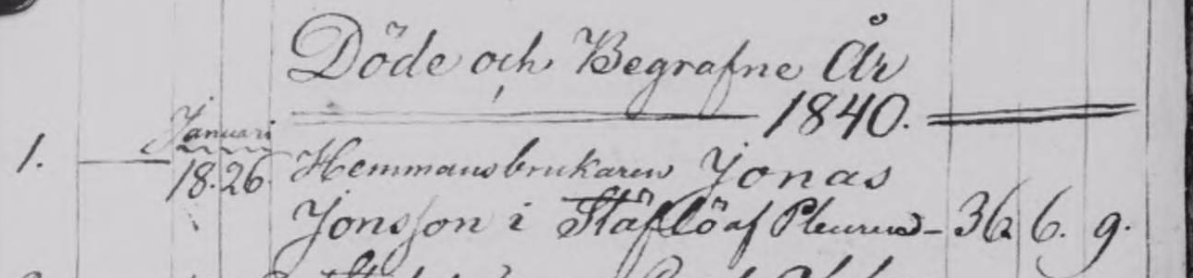 Döde och Begrafne År
1840.
Januari
1. 18. 26. Hemmansbrukaren Jonas
Jonsson i Stäflö af Pleuresi 36 6. 9.